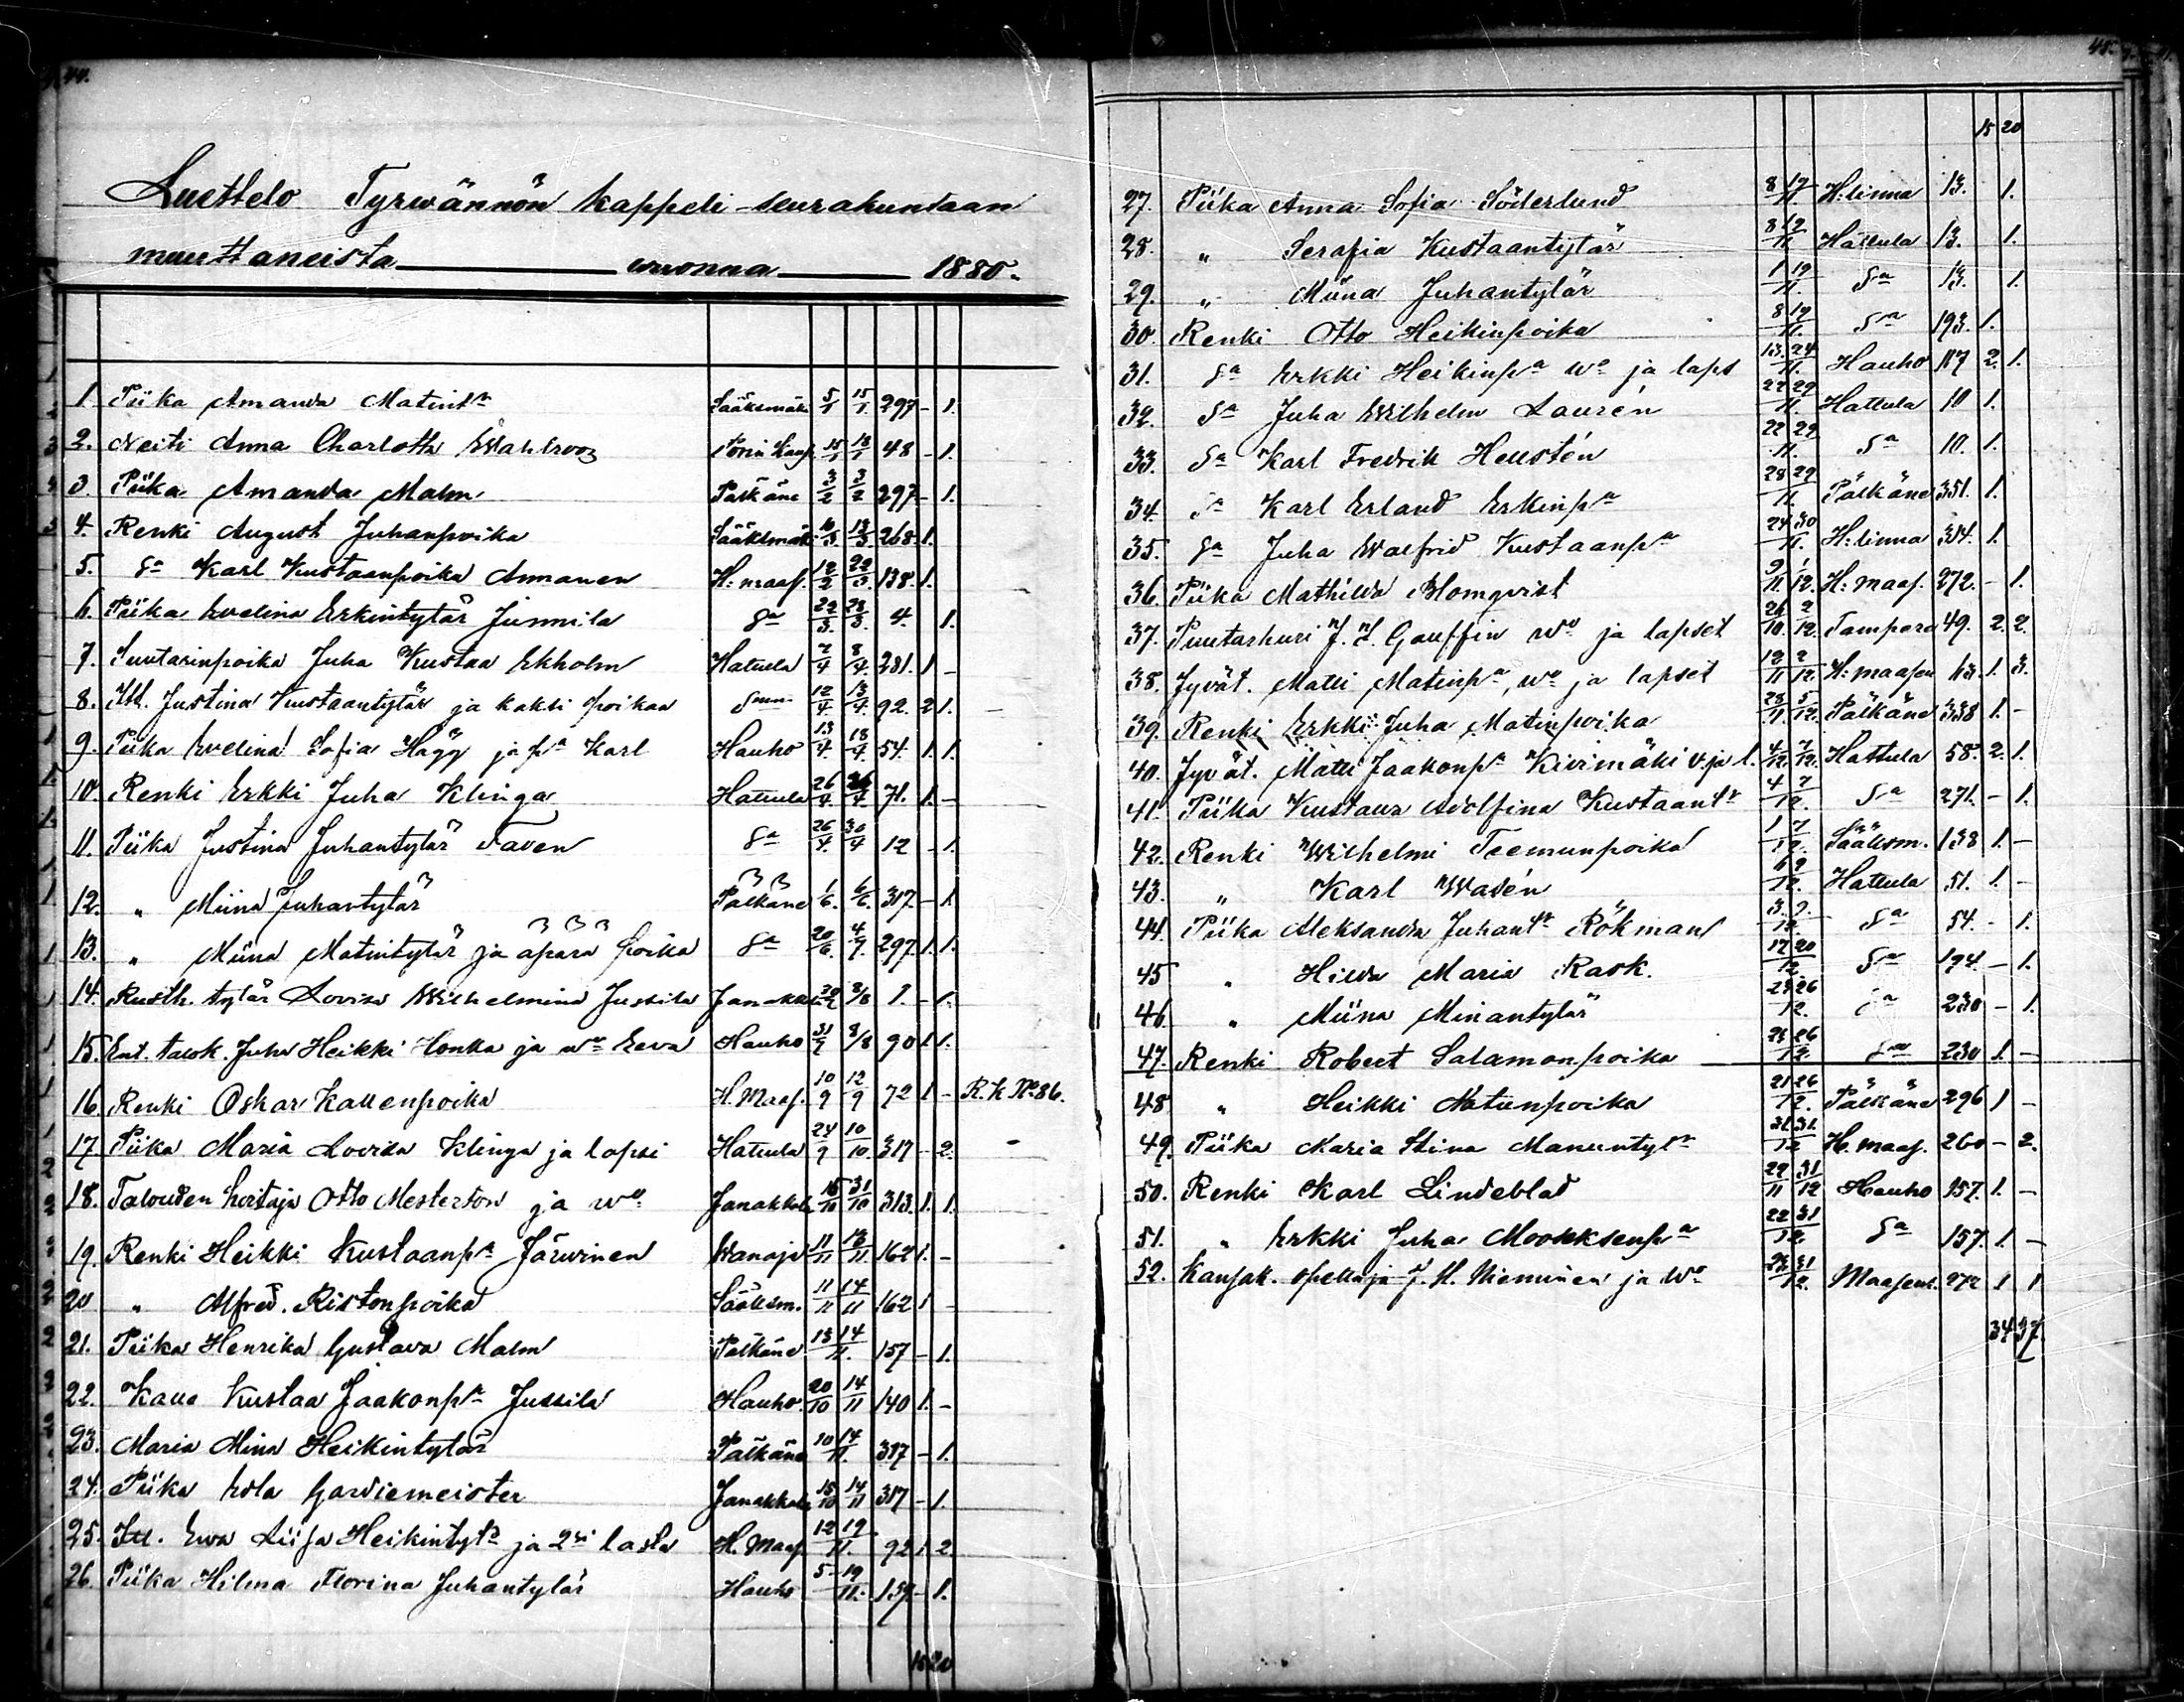 44.
Luettelo Tyrwännön kappeli-seurakuntaan
muuttaneista wuonna 1880.
1. Piika Amanda Matint:r Sääksmäki 5/1 15/1 297 - 1.
2. Neiti Anna Charlotta Wahlrooz Porin Kaup. 15/1 18/1 48 - 1.
3. Piika Amanda Malm Pälkäne 3/2 3/2 297 - 1.
4. Renki August Juhanpoika Sääksmäki 10/3 13/3 268 1.
5. Sa Karl Kustaanpoika Annanen H:maas. 12/2 22/3 138. 1.
6. Piika Evelina Erkintytär Junnila Sa 22/3 28/3 4. 1.
7. Suutarinpoika Juha Kustaa Ekholm Hattula 7/4 8/4 281. 1 -
8. Itll. Justina Kustaantytär ja kaksi poikaa 12/4 13/4 92. 2 1.
9. Piika Evelina Sofia Hägg ja pa Karl Hauho 13/4 18/4 54. 1. 1.
10. Renki Erkki Juha Klinga Hattula 26/4 26/4 71. 1. -
11. Piika Justina Juhantytär Faven Sa 26/4 30/4 12 - 1.
12. " Miina Juhantytär Pälkäne 1/6 6/6 317. - 1.
13. " Miina Matintytär ja äpärä poika Sa 20/6 4/7 297. 1. 1.
14. Rusth. tytär Lovisa Wilhelmina Jussila Janakk. 30/7 8/8 1. - 1.
15. Ent. talok. Juha Heikki Honka ja wo Eeva Hauho 31/7 8/8 90 1 1.
16. Renki Oskar Kallenpoika H. Maas. 10/9 12/9 72 1 - R. K No 86.
17. Piika Maria Lovisa Klinga ja lapsi Hattula 24/9 10/10 317 - 2.
18. Talouden hoitaja Otto Mesterton ja wo Janakkala 16/10 31/10 313. 1. 1.
19. Renki Heikki Kustaanpa Järwinen Wanaja 11/11 12/11 162 1. -
20 " Alfred. Ristonpoika Sääksm. 11/11 14/11 162 1 -
21. Piika Henrika Gustava Malm Pälkäne 13 14/11. 157 - 1.
22. Kalle Kustaa Jaakonpa Jussila Hauho. 20/10 14/11 140 1. -
23. Maria Mina Heikintytär Pälkäne 10 14/11. 317 - 1.
24. Piika Edla Gardiemeister Janakkala 15/10 14/11 317 - 1.
25. Itll. Ewa Liisa Heikintytr ja 2si lasta H. Maas. 12 19/11. 92 1. 2
26. Piika Hilma Florina Juhantytär Hauho 5 - 19/11. 157 - 1.
15 20
45.
15 20
27. Piika Anna Sofia Söderlund 8 17/11. H:linna 13. 1.
28. " Serafia Kustaantytär 8 12/11 Hattula 13. 1.
29. " Miina Juhantytär 1 19/11. Sa 13. 1.
30. Renki Otto Heikinpoika 8 19/11. Sa 193. 1.
31. Sa Erkki Heikinpa wo ja laps 13. 24/11. Hauho 117 2. 1.
32. Sa Juha Wilhelm Laurén 22 29/11. Hattula 10 1.
33. Sa Karl Fredrik Heustén 22 29/11. Sa 10. 1.
34. Sa Karl Erland Erkinpa 28 29/11. Pälkäne 351. 1.
35. Sa Juha Walfrid Kustaanpa 24 30/11. H:linna 314. 1.
36. Piika Mathilda Blomqvist 9/11 1/12. H:maas. 272. - 1.
37. Puutarhuri J. L. Gauffin wo ja lapset 26/10. 2/12. Tampere 49. 2. 2.
38. Jyvät. Matti Matinpa, wo ja lapset 12/11 2/12 H:maasen 113. 1. 3.
39. Renki Erkki Juha Matinpoika 28/11. 5/12. Pälkäne 338 1. -
40. Jyvät. Matti Jaakonpa Kivimäki v. ja l. 4/12. 7/12. Hattula 58. 2. 1.
41. Piika Kustava Adolfina Kustaantr 4 7/12. Sa 271. - 1.
42. Renki Wilhelmi Teemunpoika 1 7/12. Sääksm. 138 1. -
43. " Karl Wasén 6 9/12. Hattula 51. 1. -
44. Piika Aleksandra Juhantr Rökman 3. 9./12. Sa 54. - 1.
45 " Hilda Maria Rask. 17 20/12 Sa 194. - 1.
46. " Miina Minantytär 23 26/12. Sa 230 - 1.
47. Renki Robert Salamonpoika 23 26/12. Sa 230 1. -
48 " Heikki Matinpoika 21 26/12. Pälkäne 296 1 -
49. Piika Maria Stina Manuntytr 31 31./12 H. maas. 260 - 2.
50. Renki Karl Lindeblad 22/11 31/12 Hauho 157. 1. -
51. " Erkki Juha Mookksenpa 22 31/12 Sa 157. 1. -
52. Kansak. opettaja J. H. Nieminen ja wo 23 31/12. Maaseur. 272 1 1
34 37